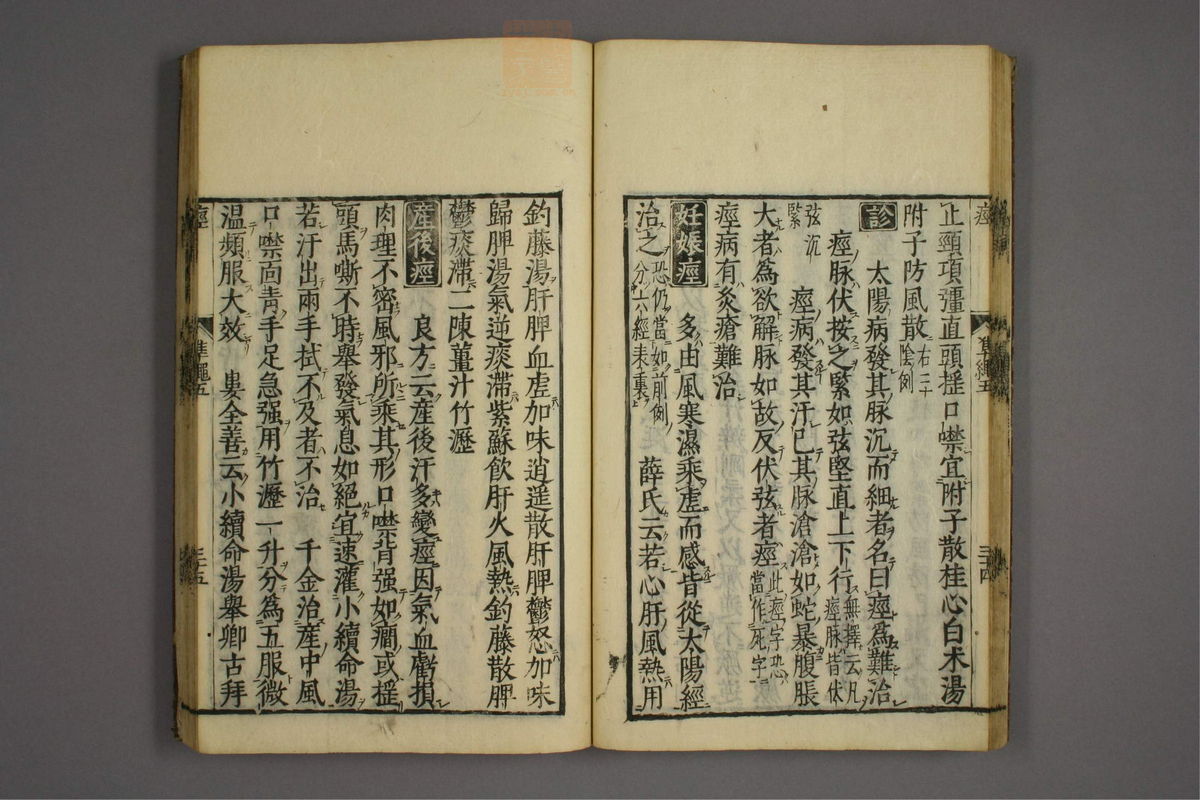 止頸項彊直頭揺口噤宜附子散桂心白木湯
附子防風散右三十陰例
診　太陽病發其脉沉而細者名曰痙為難治
痙脉伏按之緊如弦堅直上下行無擇云凡痙脉皆伏
弦沉緊　痙病發其汗已其脉滄滄如蛇暴腹脹
大者為欲解脉如故反伏弦者痙此痙字恐當作死字
痙病有灸瘡難治
妊娠痙　多由風寒濕乘虚而感皆從太陽經
治之恐仍當如前例分六經表裏　薛氏云若心肝風熱用
釣藤湯肝脾血虚加味逍遥散肝脾鬱怒加味
歸脾湯氣逆痰滯紫蘇飲肝火風熱釣藤散脾
鬱痰滯二陳薑汁竹瀝
産後痙　良方云産後汗多變痙因氣血虧損
肉理不密風邪所乘其形口噤背强如癇或揺
頭馬嘶不時舉發氣息如絕宜速灌小續命湯
若汗出兩手拭不及者不治　千金治産中風
口噤面青手足急强用竹瀝一升分為五服微
温頻服大效　婁全善云小續命湯舉卿古拜